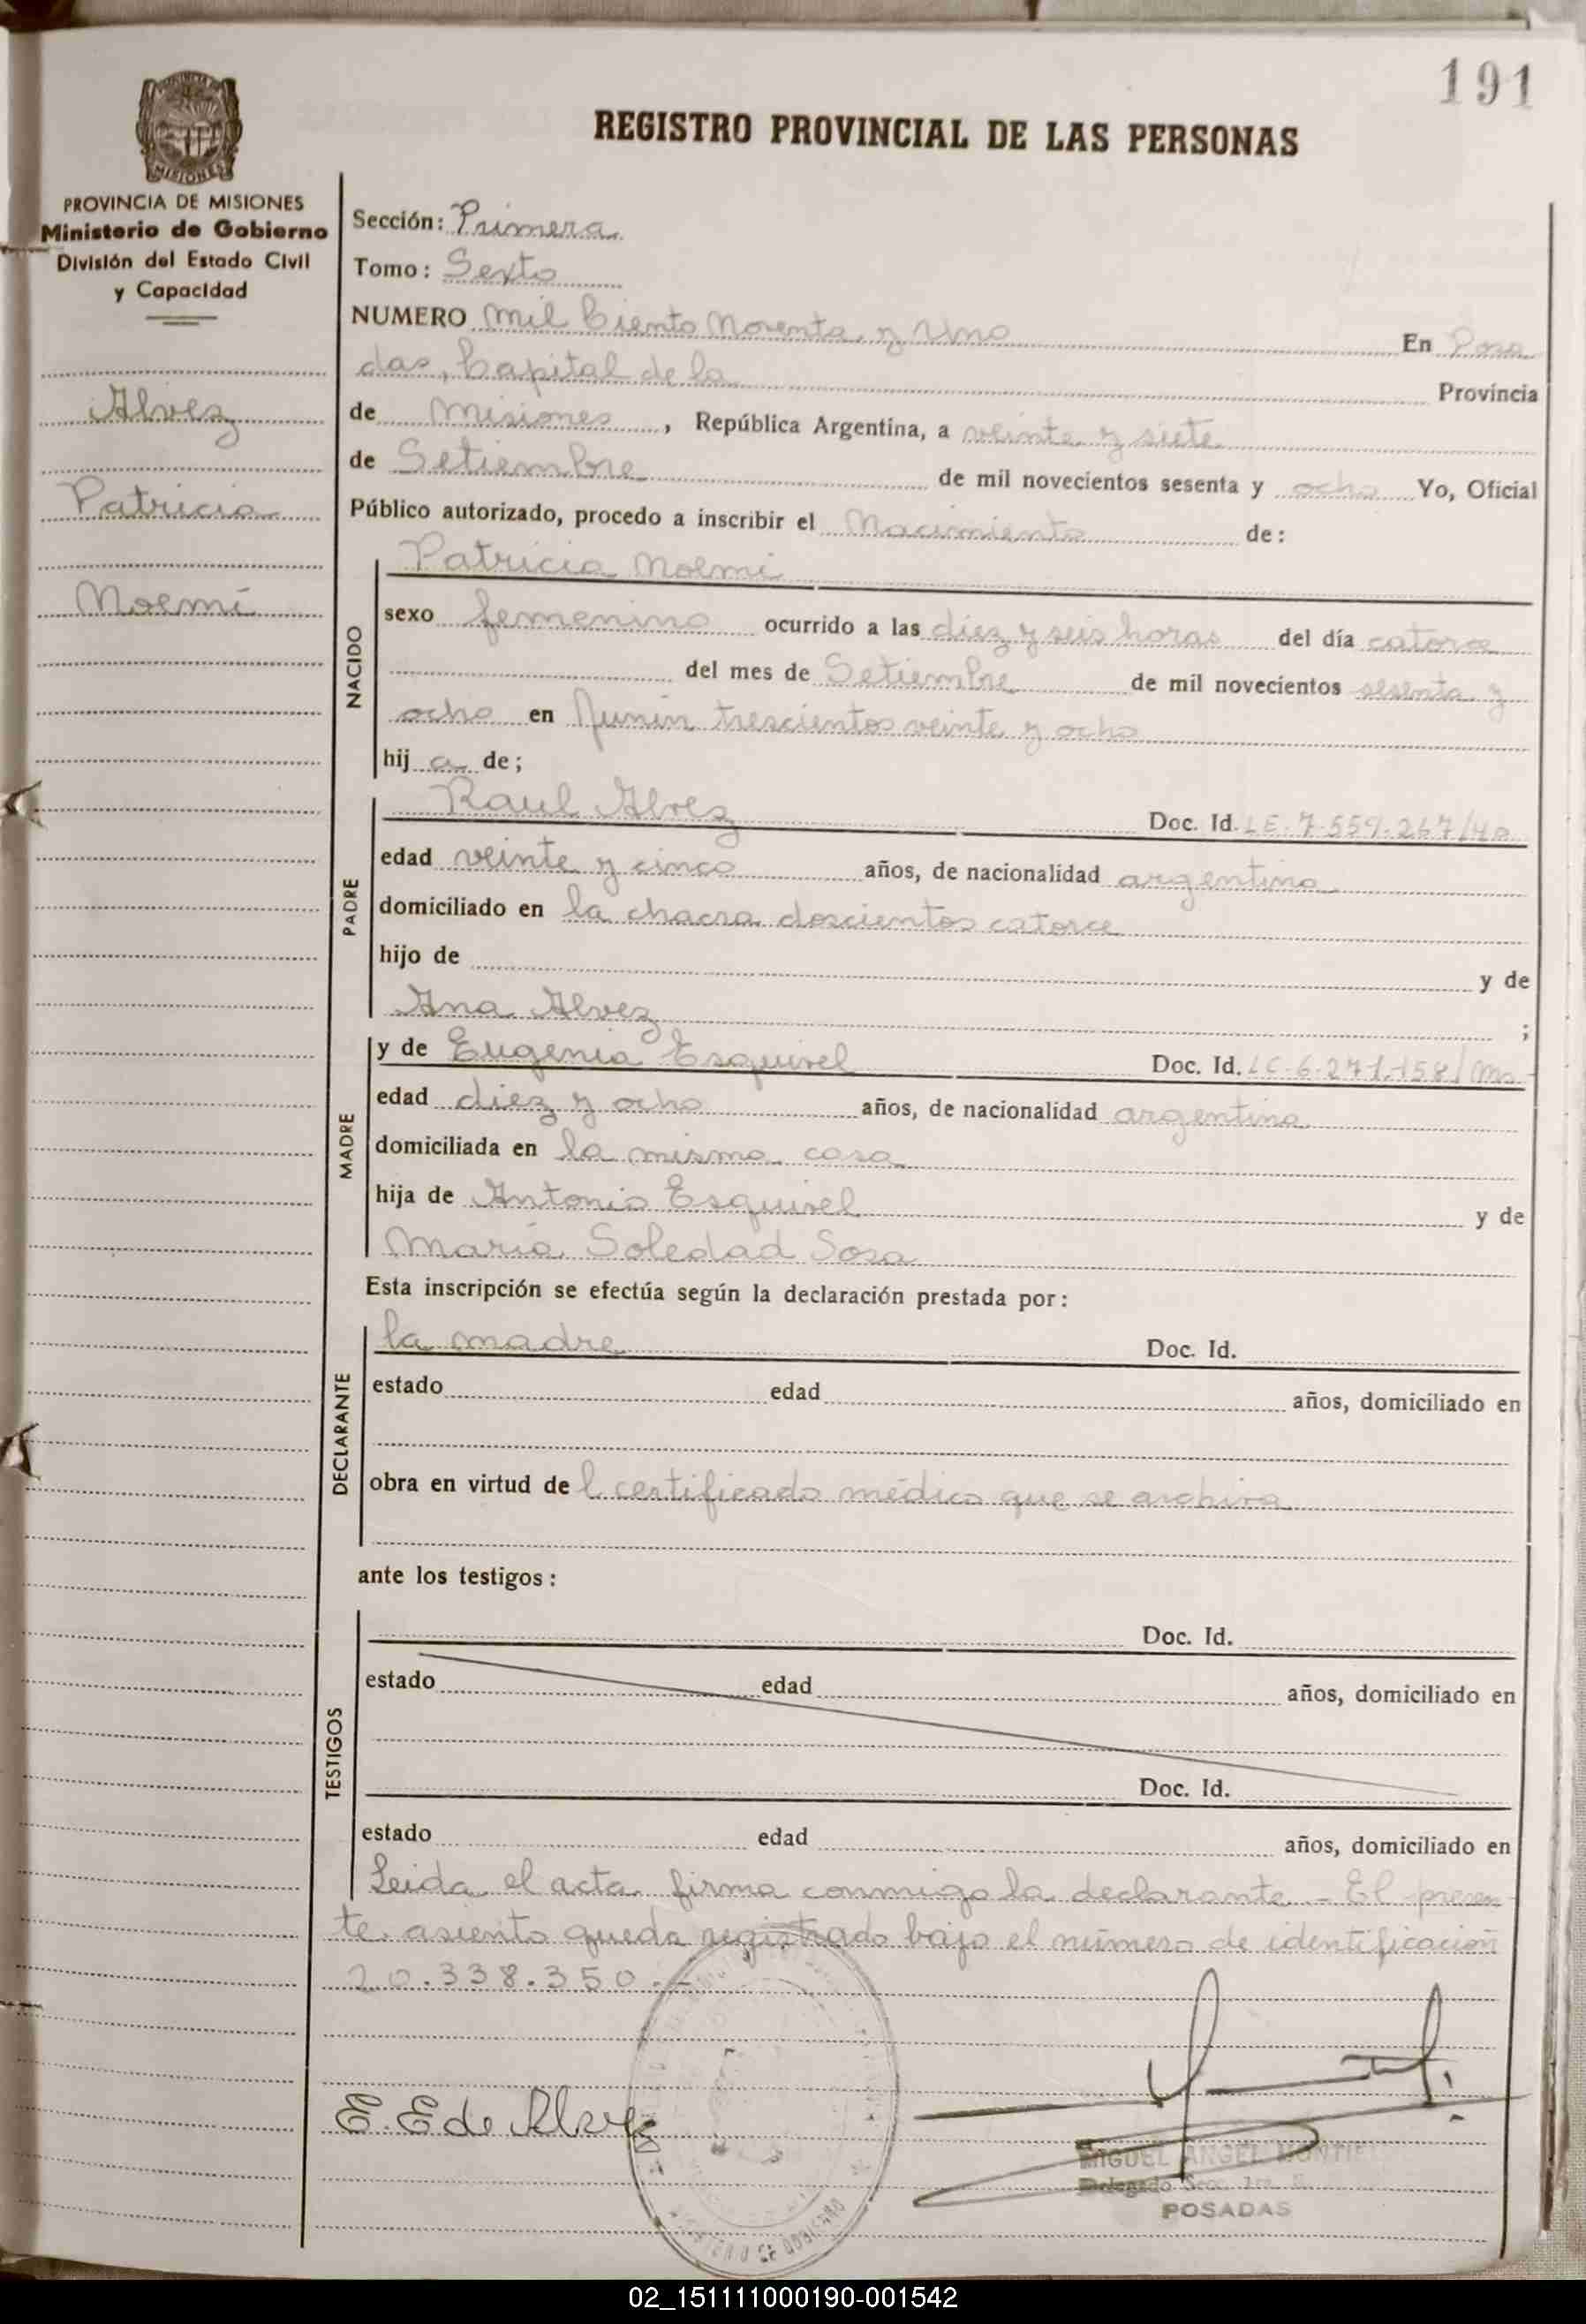 191
REGISTRO PROVINCIAL DE LAS PERSONAS
PROVINCIA DE MISIONES
Ministerio de Gobierno
División del Estado Civil
y Capacidad
Alvez
Patricia
Noemí
Sección: Primera
Tomo: Sexto
NUMERO Mil Ciento Noventa y Uno En Posa
das, Capital de la Provincia
de Misiones, República Argentina, a veinte y siete
de Setiembre de mil novecientos sesenta y ocho Yo, Oficial
Público autorizado, procedo a inscribir el Nacimiento de:
NACIDO
Patricia Noemi
sexo femenino ocurrido a las diez y seis horas del día catorce
del mes de Setiembre de mil novecientos sesenta y
ocho en Junin trescientos veinte y ocho
hij a de;
PADRE
Raul Alvez Doc. Id. LE. 7.559.267/40
edad veinte y cinco años, de nacionalidad argentina
domiciliado en la chacra doscientos catorce
hijo de y de
Ana Alvez ;
MADRE
y de Eugenia Esquivel Doc. Id. LC-6.271.158/Ms
edad diez y ocho años, de nacionalidad argentina
domiciliada en la misma casa
hija de Antonio Esquivel y de
María Soledad Sosa
Esta inscripción se efectúa según la declaración prestada por:
DECLARANTE
la madre Doc. Id.
estado edad años, domiciliado en
obra en virtud de l certificado médico que se archiva
ante los testigos:
TESTIGOS
Doc. Id.
estado edad años, domiciliado en
Doc. Id.
estado edad años, domiciliado en
Leida el acta firma conmigo la declarante - El presen
te asiento queda registrado bajo el número de identificación
20.338.350.-
E. E de Alvez
MIGUEL ANGEL MONTIEL
Delegado Secc. 1ra.
POSADAS
02_151111000190-001542